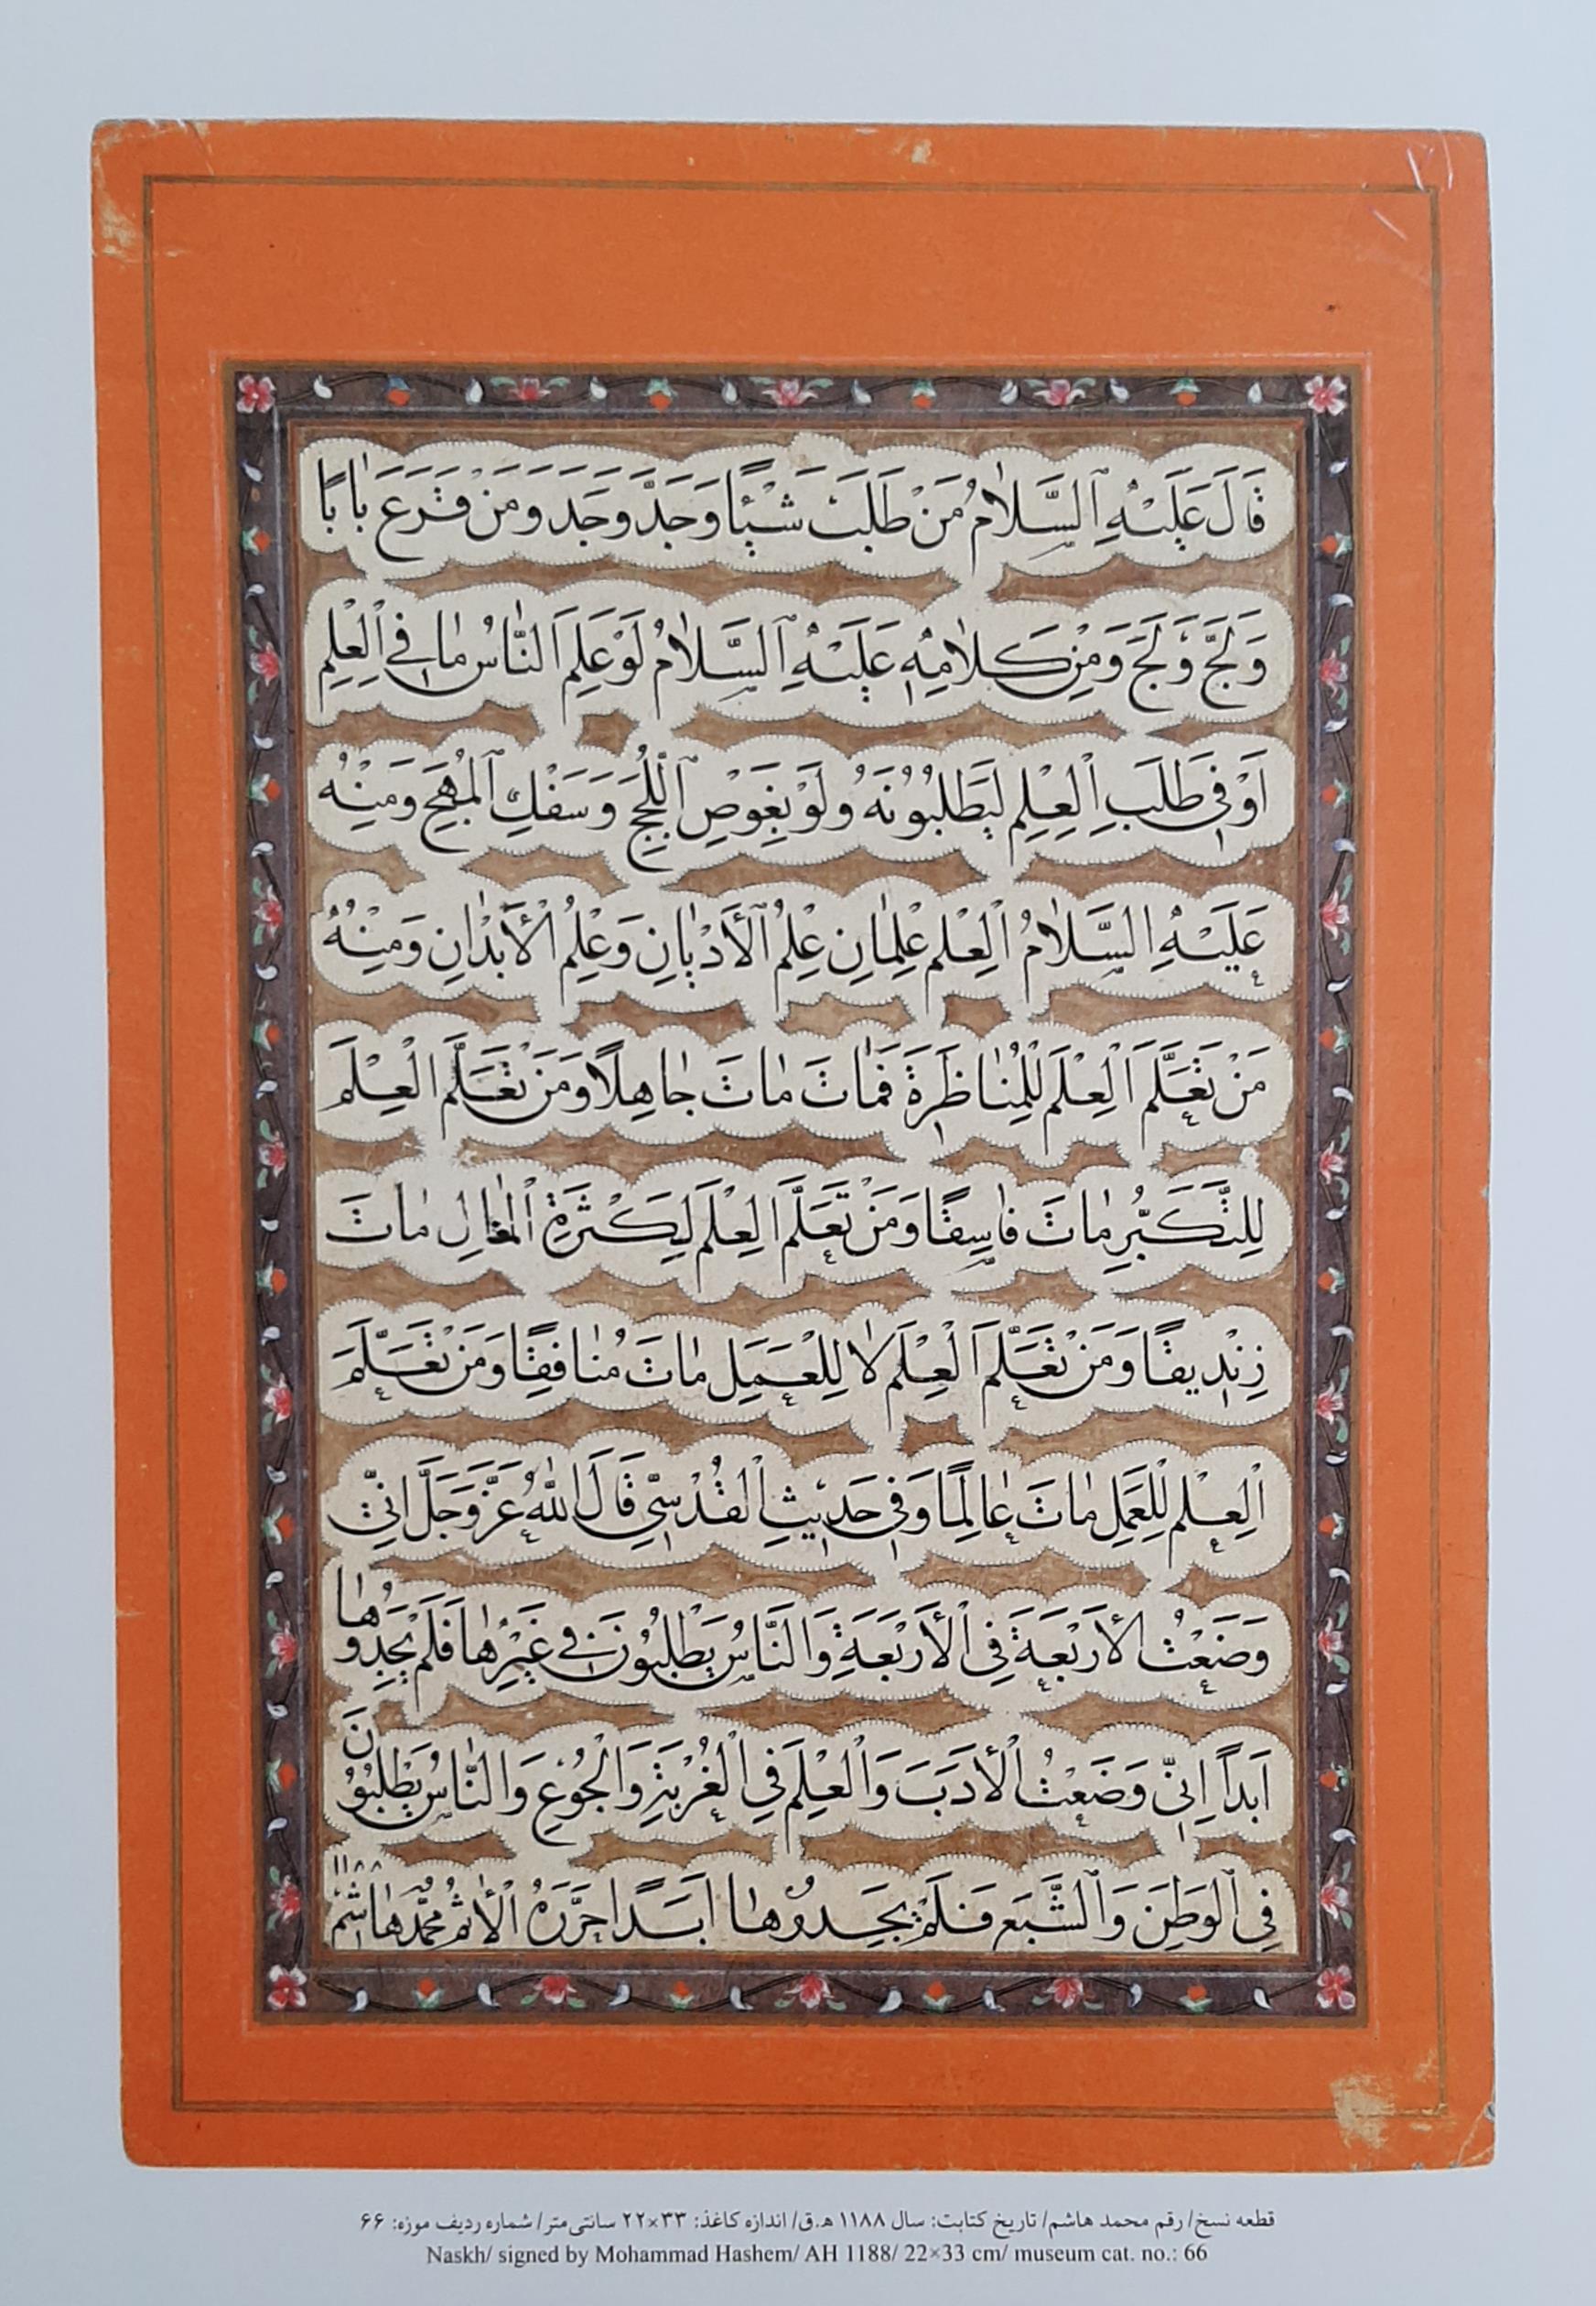 قَالَ عَلَيْهِ ٱلسَّلَامُ مَنْ طَلَبَ شَيْئًا وَجَدَّ وَجَدَ وَمَنْ قَرَعَ بَابًا
وَلَجَّ وَلَجَ وَمِنْ كَلَامِهِ عَلَيْهِ ٱلسَّلَامُ لَوْ عَلِمَ النَّاسُ مَا فِي الْعِلْمِ
اَوْ فِي طَلَبِ الْعِلْمِ لَيَطْلُبُونَهُ وَلَوْ بِغَوْصِ ٱللُّجَجِ وَسَفْكِ ٱلْمُهَجِ وَمِنْهُ
عَلَيْهِ السَّلَامُ الْعِلْمُ عِلْمَانِ عِلْمُ ٱلْأَدْيَانِ وَعِلْمُ الْأَبْدَانِ وَمِنْهُ
مَنْ تَعَلَّمَ الْعِلْمَ لِلْمُنَاظَرَةِ فَمَاتَ مَاتَ جَاهِلًا وَمَنْ تَعَلَّمَ الْعِلْمَ
لِلتَّكَبُّرِ مَاتَ فَاسِقًا وَمَنْ تَعَلَّمَ الْعِلْمَ لِكَثْرَةِ الْمَقَالِ مَاتَ
زِنْدِيقًا وَمَنْ تَعَلَّمَ الْعِلْمَ لَا لِلْعَمَلِ مَاتَ مُنَافِقًا وَمَنْ تَعَلَّمَ
الْعِلْمَ لِلْعَمَلِ مَاتَ عَالِمًا وَفِي حَدِيثِ الْقُدْسِيِّ قَالَ اللهُ عَزَّ وَجَلَّ اِنِّي
وَضَعْتُ الْأَرْبَعَةَ فِي الْأَرْبَعَةِ وَالنَّاسُ يَطْلُبُونَ فِي غَيْرِهَا فَلَمْ يَجِدُوهَا
اَبَدًا اِنِّي وَضَعْتُ الْأَدَبَ وَالْعِلْمَ فِي الْغُرْبَةِ وَالْجُوعِ وَالنَّاسُ يَطْلُبُونَ
فِي الْوَطَنِ وَٱلشَّبَعِ فَلَمْ يَجِدُوهَا اَبَدًا حَرَّرَهُ الْأَثِمُ مُحَمَّدْ هَاشِمْ ١١٨٨
قطعه نسخ/ رقم محمد هاشم/ تاریخ کتابت: سال ۱۱۸۸ ه‍.ق/ اندازه کاغذ: ۳۳×۲۲ سانتی‌متر/ شماره ردیف موزه: ۶۶
Naskh/ signed by Mohammad Hashem/ AH 1188/ 22×33 cm/ museum cat. no.: 66